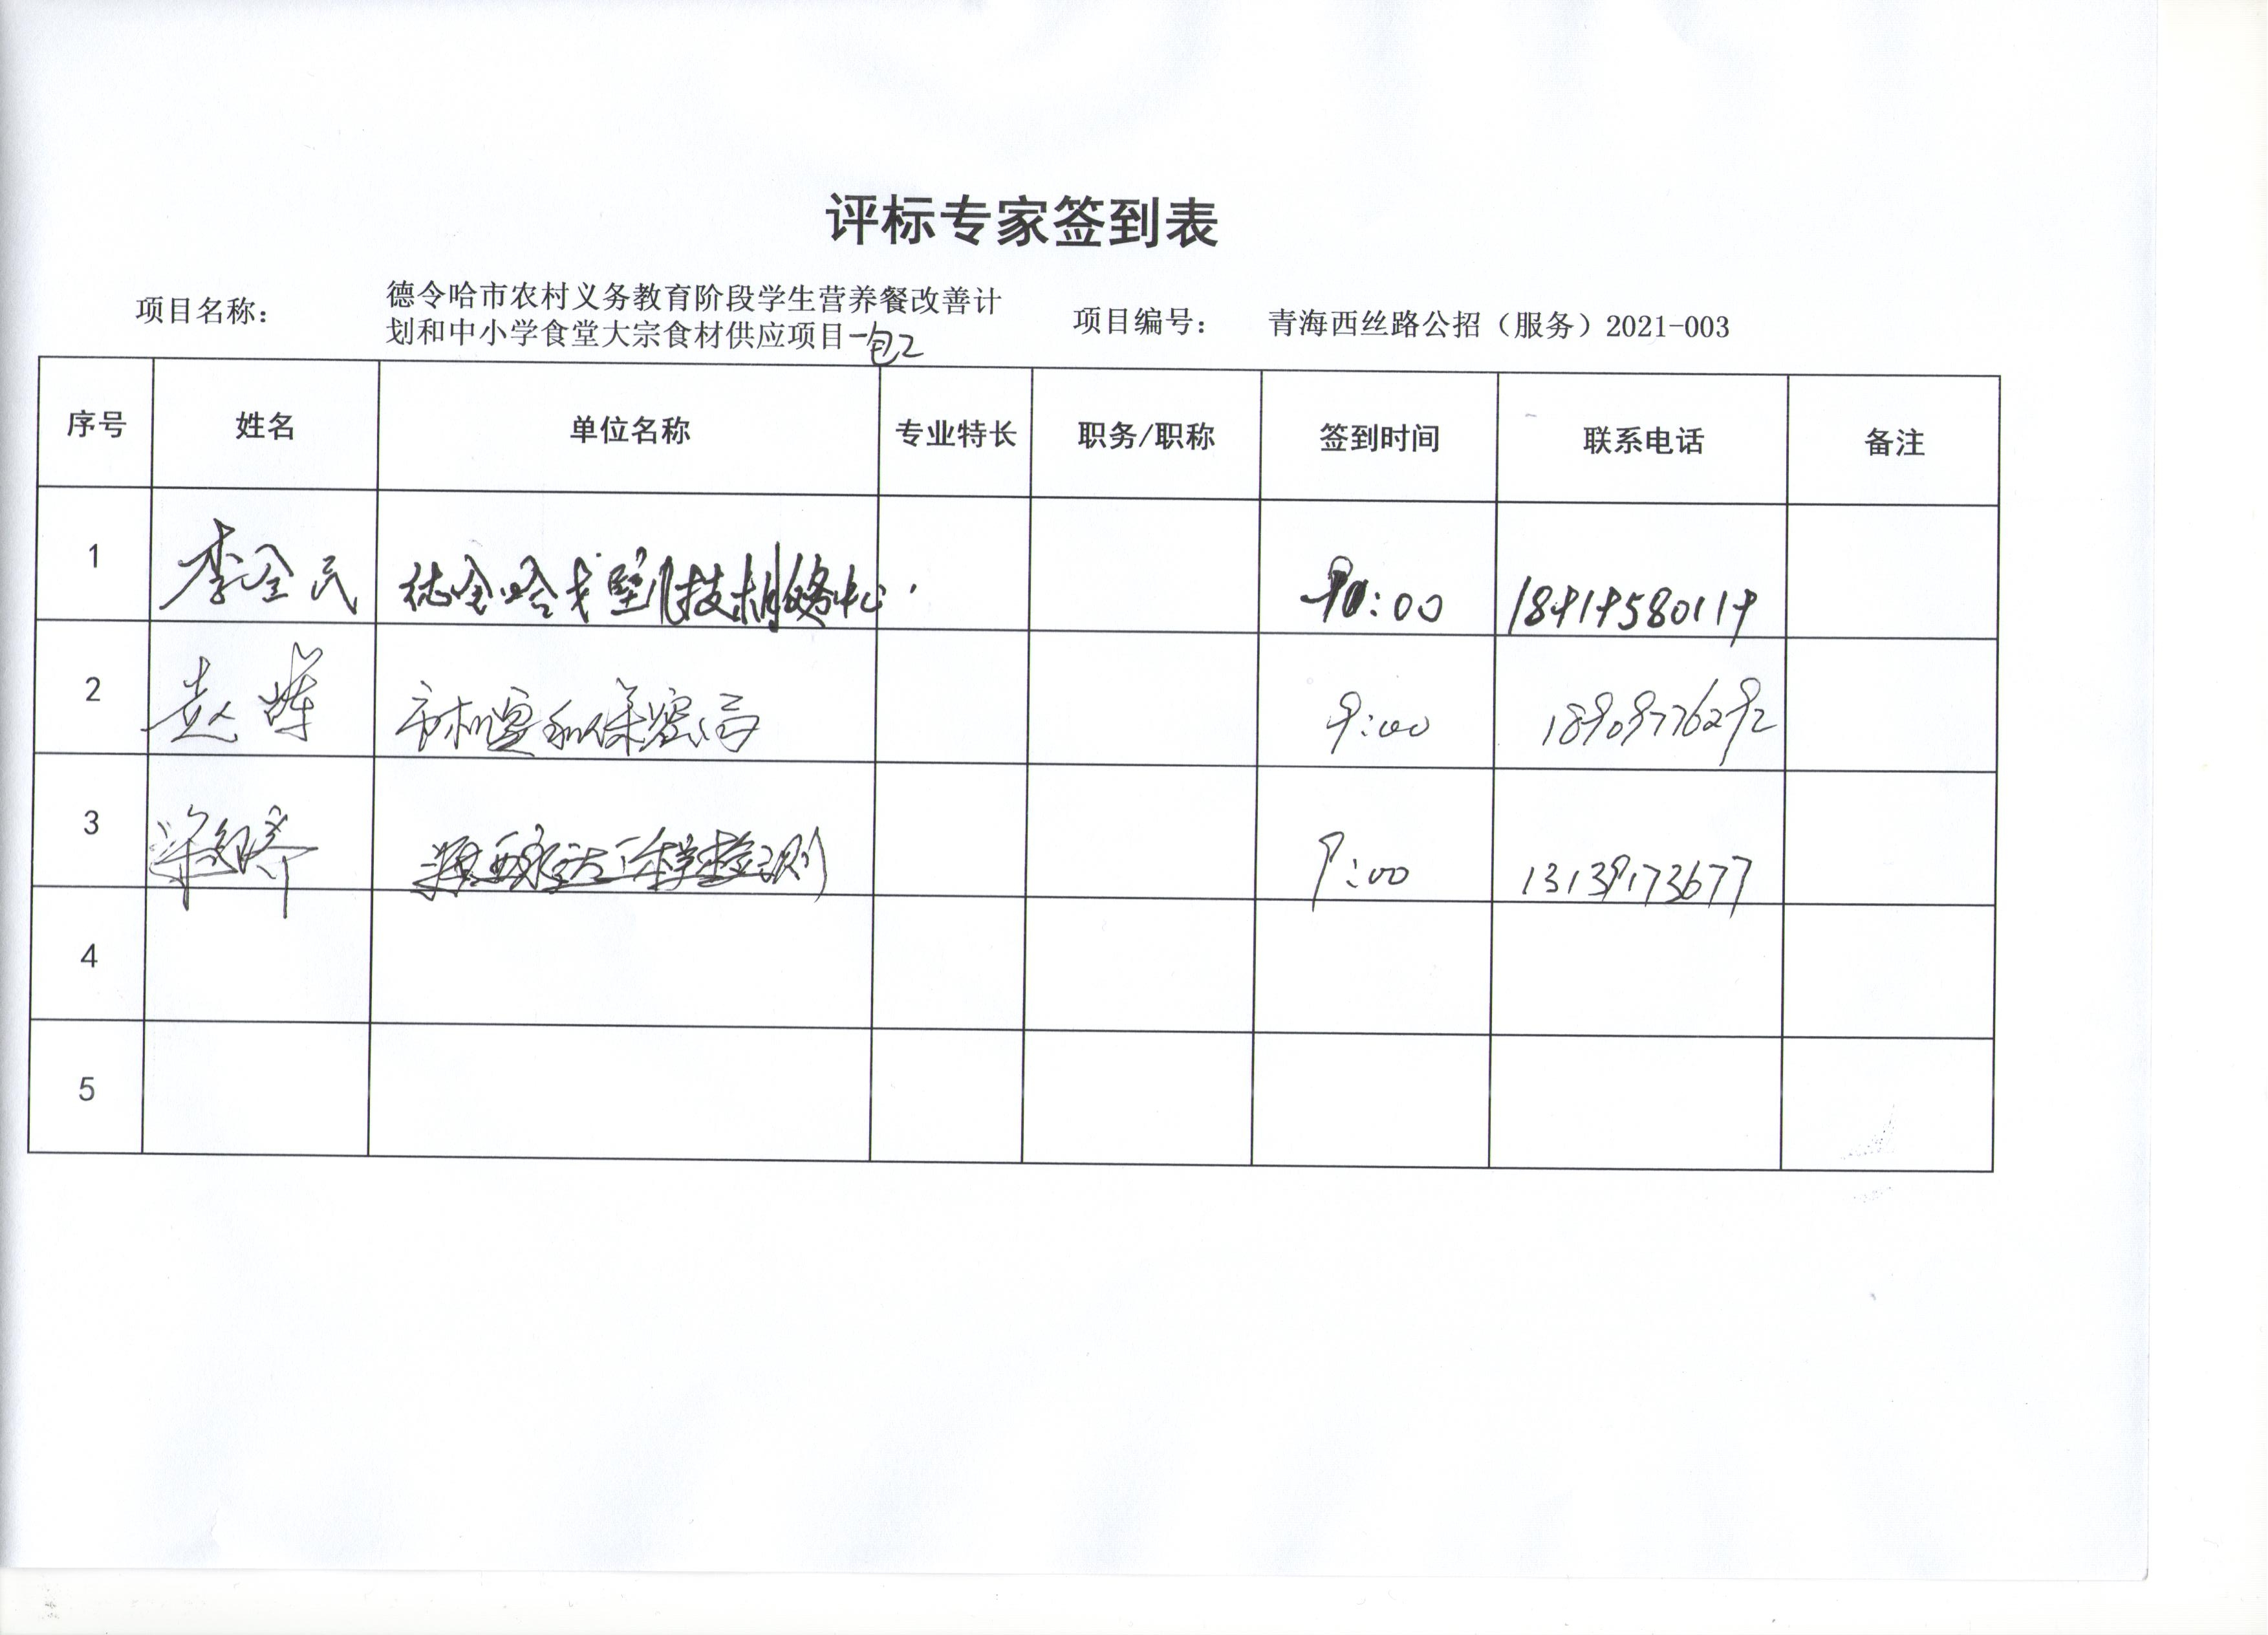 评标专家签到表
项目名称：
德令哈市农村义务教育阶段学生营养餐改善计
划和中小学食堂大宗食材供应项目-包2
项目编号： 青海西丝路公招（服务）2021-003
序号 姓名 单位名称 专业特长 职务/职称 签到时间 联系电话 备注
1 李全民 :00
2 赵 市机要和保密局 9:00 18909776292
3 梁 9:00 13139173677
4
5